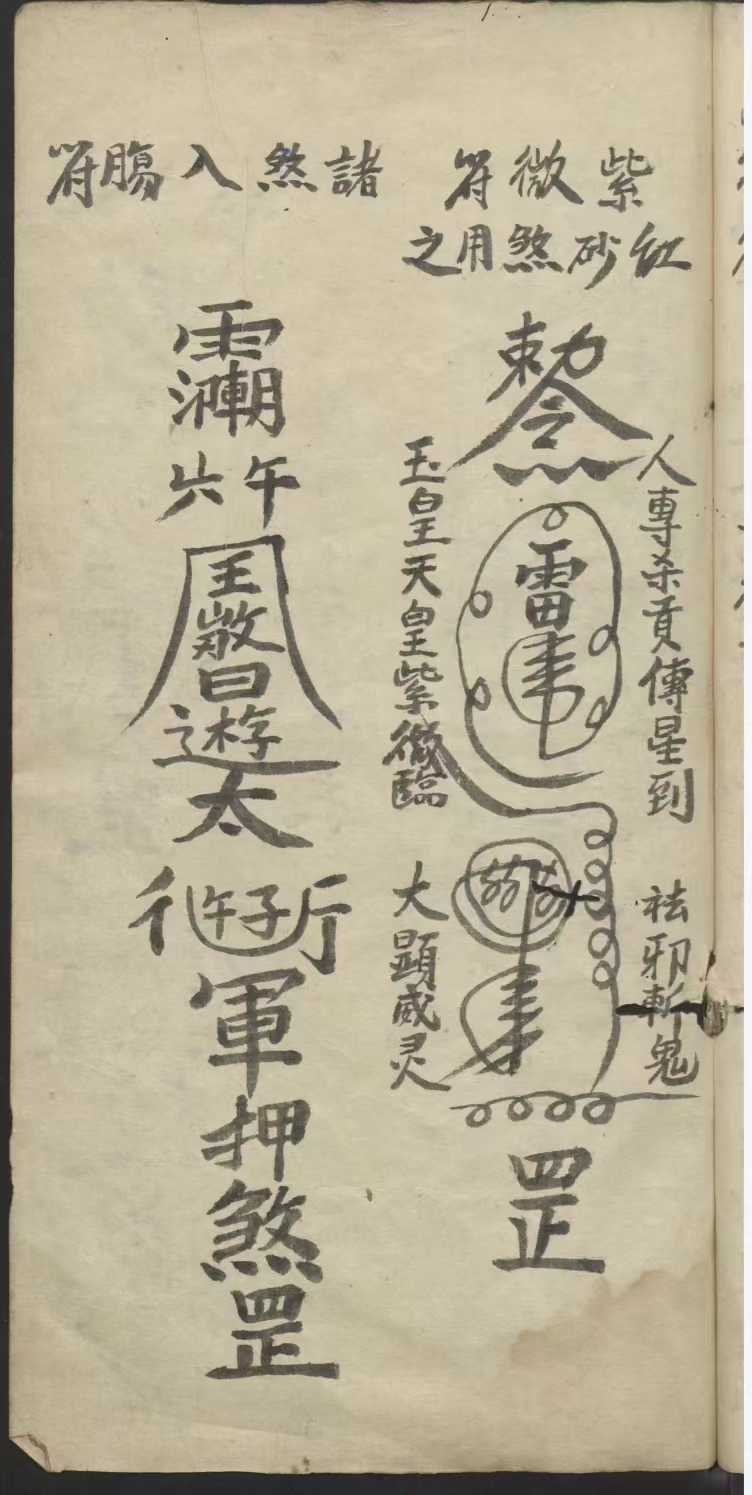 紫微符
紅砂煞用之
勅令
雷
罡
人專杀貢傳星到
祛邪斬鬼
玉皇天皇紫微臨
大顯威灵
諸煞入腸符
午
王
日遊
太
子午
軍
押
煞
罡